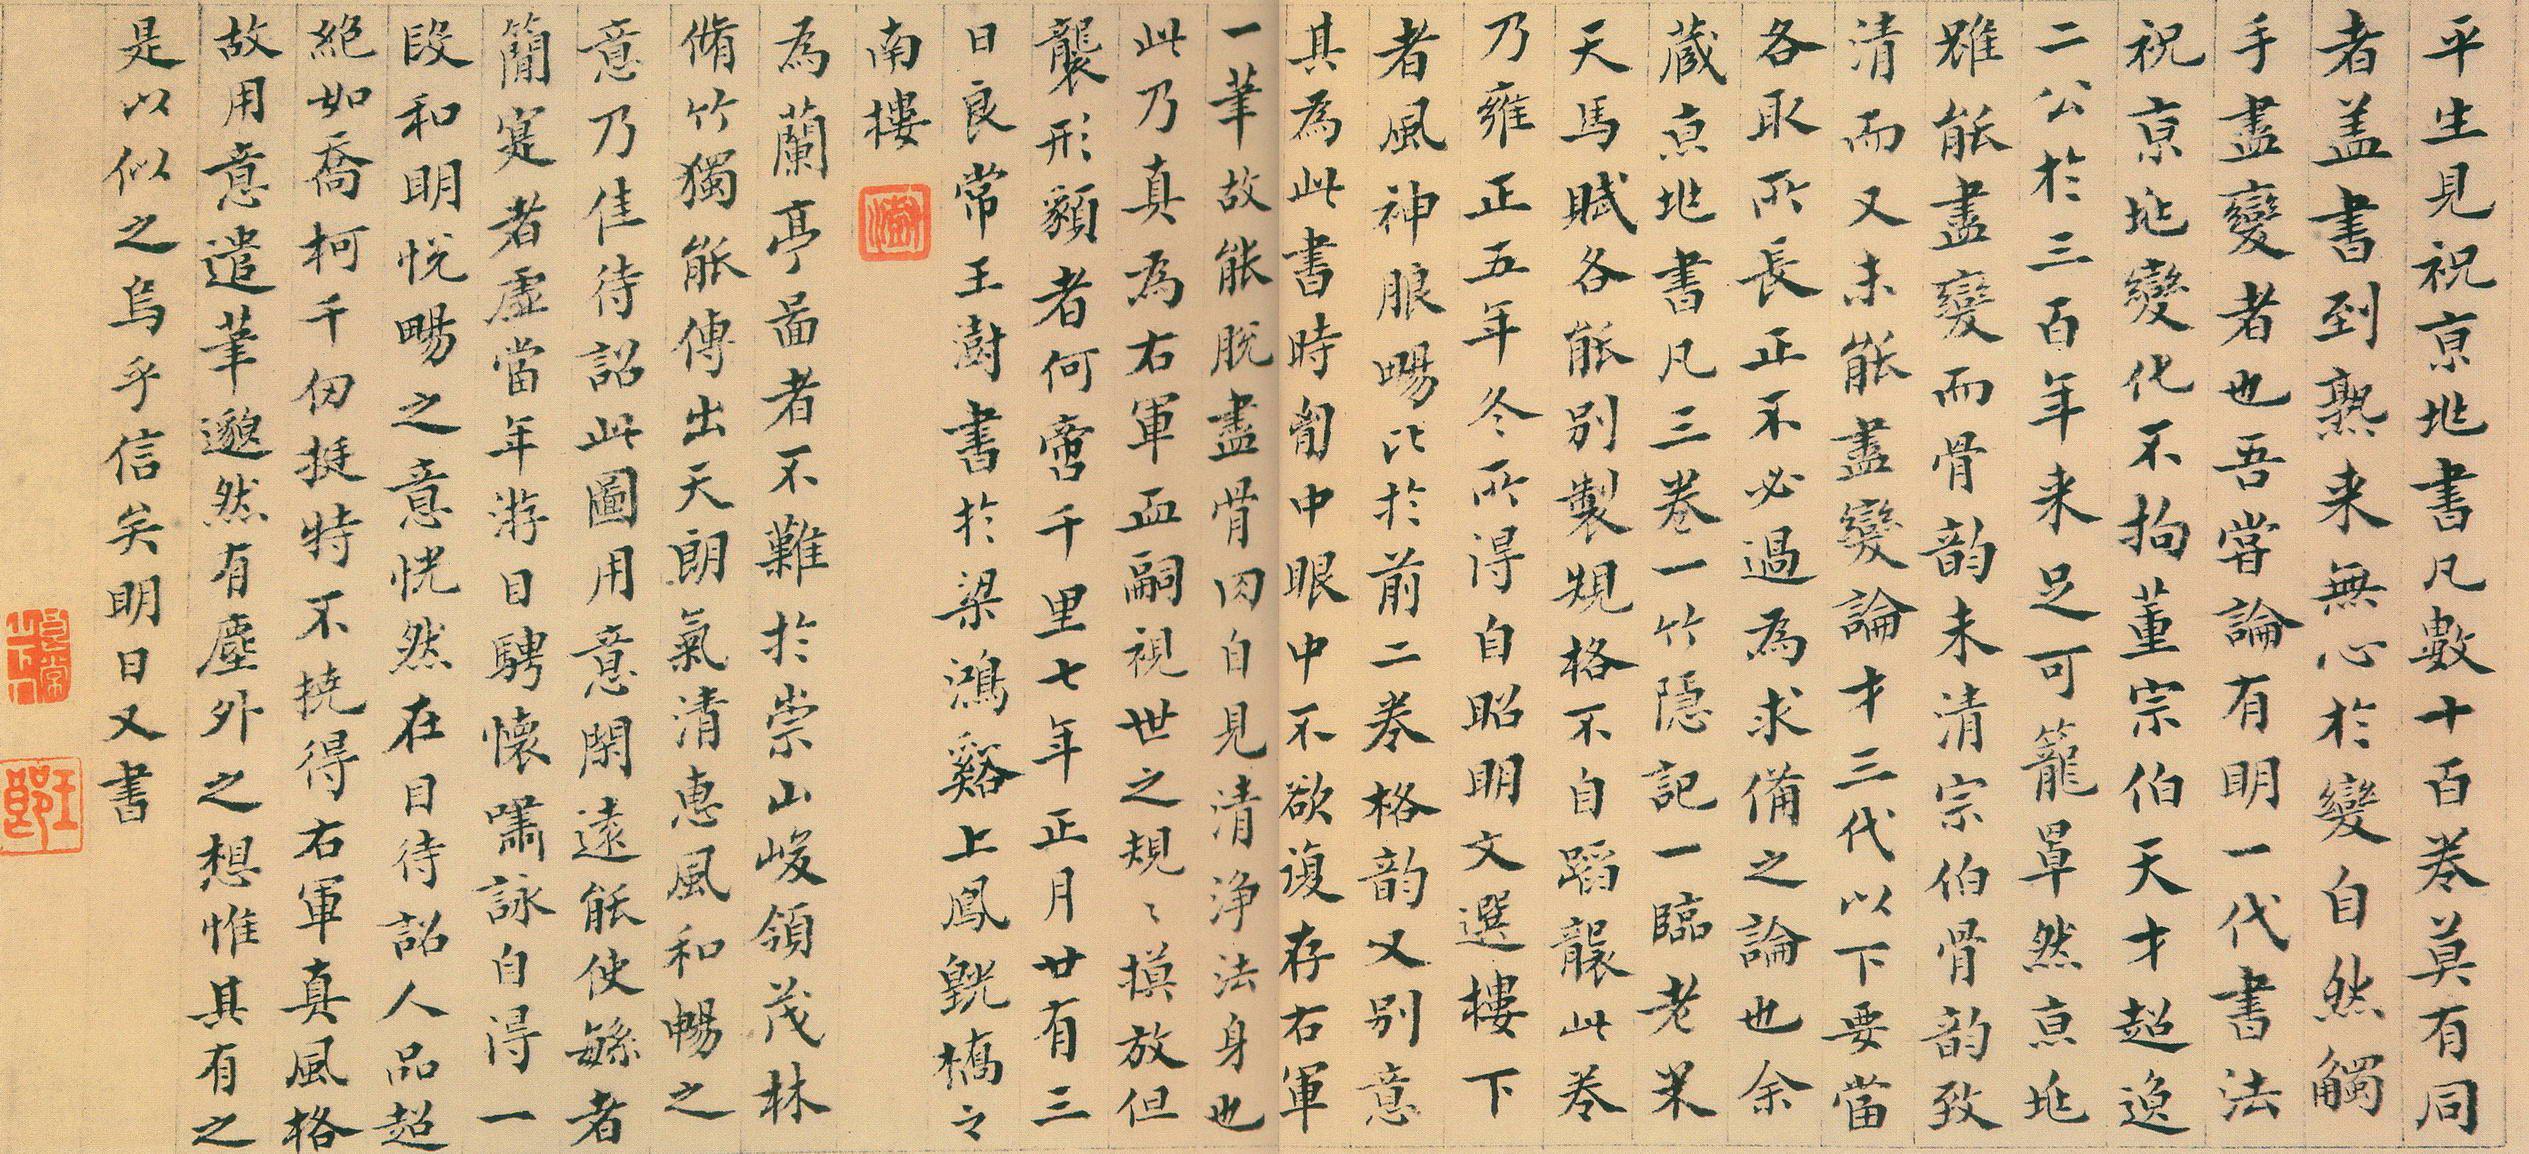 平生見祝京兆書凡數十百卷莫有同
者盖書到熟来無心於變自然觸
手盡變者也吾嘗論有明一代書法
祝京兆變化不拘董宗伯天才超逸
二公於三百年来足可籠罩然京兆
雖能盡變而骨韵未清宗伯骨韵致
清而又未能盡變論才三代以下要當
各取所長正不必過為求備之論也余
蔵京兆書凡三卷一竹隱記一臨老米
天馬賦各能别製規格不自蹈襲此卷
乃雍正五年冬所得自昭明文選樓下
者風神脱暢比於前二卷格韵又别意
其為此書時胷中眼中不欲復存右軍
一筆故能脱盡骨肉自見清浄法身也
此乃真為右軍血嗣視世之規〻摸放但
襲形貌者何啻千里七年正月廿有三
日良常王澍書於梁鴻谿上鳳氄橋之
南樓
澍
為蘭亭啚者不難於崇山峻領茂林
脩竹獨能傳出天朗氣清惠風和暢之
意乃佳待詔此圖用意閑遠能使緐者
簡寔者虚當年游目騁懷嘯詠自得一
段和明悦暢之意恍然在目待詔人品超
絶如喬柯千仞挺特不撓得右軍真風格
故用意遣筆邈然有塵外之想惟其有之
是以似之烏乎信矣明日又書